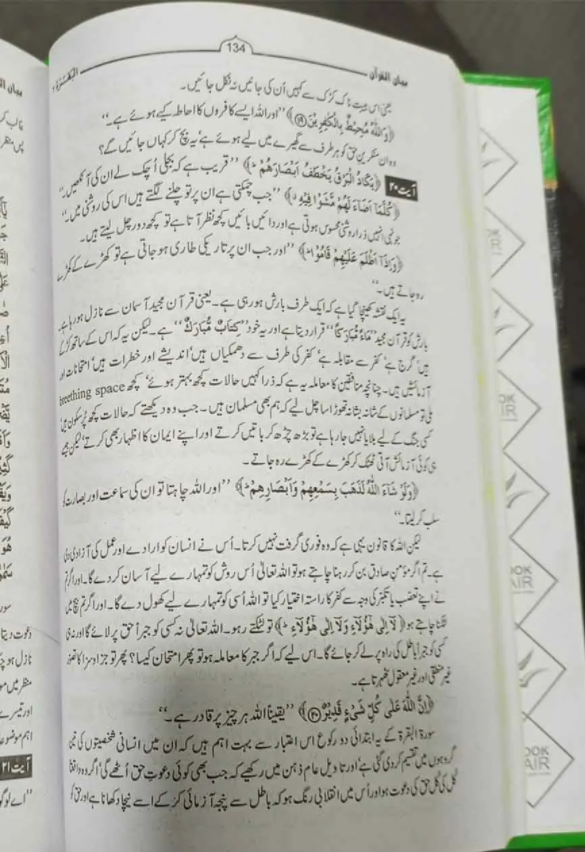 بیان القرآن
134
البَقَرَة ۲
یعنی اس ہیبت ناک کڑک سے کہیں اُن کی جانیں نہ نکل جائیں۔
﴿وَاللّٰهُ مُحِيْطٌۢ بِالْكٰفِرِيْنَ ﴿۱۹﴾﴾ ’’اور اللہ ایسے کافروں کا احاطہ کیے ہوئے ہے۔‘‘
وہ ان منکرینِ حق کو ہر طرف سے گھیرے میں لیے ہوئے ہے‘ یہ بچ کر کہاں جائیں گے؟
آیت ۲۰ ﴿يَكَادُ الْبَرْقُ يَخْطَفُ اَبْصَارَهُمْ ؕ﴾ ’’قریب ہے کہ بجلی اُچک لے ان کی آنکھیں۔‘‘
﴿كُلَّمَآ اَضَآءَ لَهُمْ مَّشَوْا فِيْهِ ۙ﴾ ’’جب چمکتی ہے ان پر تو چلنے لگتے ہیں اس کی روشنی میں۔‘‘
جونہی انہیں ذرا روشنی محسوس ہوتی ہے اور دائیں بائیں کچھ نظر آتا ہے تو کچھ دور چل لیتے ہیں۔
﴿وَاِذَآ اَظْلَمَ عَلَيْهِمْ قَامُوْا ؕ﴾ ’’اور جب ان پر تاریکی طاری ہو جاتی ہے تو کھڑے کے کھڑے
رہ جاتے ہیں۔‘‘
یہ ایک نقشہ کھینچا گیا ہے کہ ایک طرف بارش ہو رہی ہے۔ یعنی قرآن مجید آسمان سے نازل ہو رہا ہے۔
بارش کو قرآن مجید ’’مَآءً مُّبٰرَكًا‘‘ قرار دیتا ہے اور یہ خود ’’كِتٰبٌ مُّبٰرَكٌ‘‘ ہے۔ لیکن یہ کہ اس کے ساتھ کڑکے
ہیں‘ گرج ہے‘ کفر سے مقابلہ ہے‘ کفر کی طرف سے دھمکیاں ہیں‘ اندیشے اور خطرات ہیں‘ امتحانات اور
آزمائشیں ہیں۔ چنانچہ منافقین کا معاملہ یہ ہے کہ ذرا کہیں حالات کچھ بہتر ہوئے‘ کچھ breething space
ملی تو مسلمانوں کے شانہ بشانہ تھوڑا سا چل لیے کہ ہم بھی مسلمان ہیں۔ جب وہ دیکھتے کہ حالات کچھ پُرسکون ہیں‘
کسی جنگ کے لیے بلایا نہیں جا رہا ہے تو بڑھ چڑھ کر باتیں کرتے اور اپنے ایمان کا اظہار بھی کرتے‘ لیکن جیسے
ہی کوئی آزمائش آتی ٹھٹک کر کھڑے کے کھڑے رہ جاتے۔
﴿وَلَوْ شَآءَ اللّٰهُ لَذَهَبَ بِسَمْعِهِمْ وَاَبْصَارِهِمْ ؕ﴾ ’’اور اللہ چاہتا تو ان کی سماعت اور بصارت کو
سلب کر لیتا۔‘‘
لیکن اللہ کا قانون یہی ہے کہ وہ فوری گرفت نہیں کرتا۔ اُس نے انسان کو ارادے اور عمل کی آزادی دی
ہے۔ تم اگر مؤمنِ صادق بن کر رہنا چاہتے ہو تو اللہ تعالیٰ اُس روش کو تمہارے لیے آسان کر دے گا۔ اور اگر تم
نے اپنے تعصب یا تکبّر کی وجہ سے کفر کا راستہ اختیار کیا تو اللہ اُسی کو تمہارے لیے کھول دے گا۔ اور اگر تم بیچ میں
لٹکنا چاہتے ہو ﴿لَآ اِلٰى هٰٓؤُلَآءِ وَلَآ اِلٰى هٰٓؤُلَآءِ ؕ﴾ تو لٹکتے رہو۔ اللہ تعالیٰ نہ کسی کو جبراً حق پر لائے گا اور نہ ہی
کسی کو جبراً باطل کی راہ پر لے کر جائے گا۔ اس لیے کہ اگر جبر کا معاملہ ہو تو پھر امتحان کیسا؟ پھر تو جزا و سزا کا تصور
غیر منطقی اور غیر معقول ٹھہرتا ہے۔
﴿اِنَّ اللّٰهَ عَلٰى كُلِّ شَىْءٍ قَدِيْرٌ ﴿۲۰﴾﴾ ’’یقیناً اللہ ہر چیز پر قادر ہے۔‘‘
سورۃ البقرۃ کے یہ ابتدائی دو رکوع اس اعتبار سے بہت اہم ہیں کہ ان میں انسانی شخصیتوں کی تین
گروہوں میں تقسیم کر دی گئی ہے‘ اور تاویلِ عام ذہن میں رکھیے کہ جب بھی کوئی دعوتِ حق اُٹھے گی‘ اگر وہ واقعتاً
کُل کی کُل حق کی دعوت ہو اور اُس میں انقلابی رنگ ہو کہ باطل سے پنجہ آزمائی کر کے اسے نیچا دکھانا ہے اور حق کو
بیان القرآن
آیت ۲۱